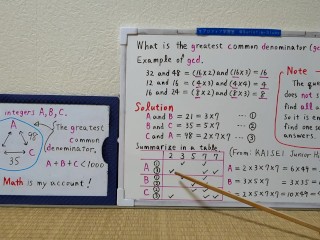 What is the greatest common denominator (gc
Example of gcd.
32 and 48 = (16×2) and (16×3) = 16
12 and 16 = (4×3) and (4×4) = 4
16 and 24 = (8×2) and (8×3) = 8
Note
The que
does not s
find all
So it is en
find one
Solution
A and B = 21 = 3×7 … ①
B and C = 35 = 5×7 … ②
C and A = 98 = 2×7×7 … ③
Summarize in a table.
2 3 5 7 7
A ① ③
B ① ②
C ② ③
(From: KAISEI Junior H
A = 2×3×7×7 = 6×49 =
B = 3×5×7 = 3×35 =
C = 2×5×7×7 = 10×49
integers A, B, C.
A
98
C
35
The greatest
common
denominator,
A+B+C<1000
Math is my account!